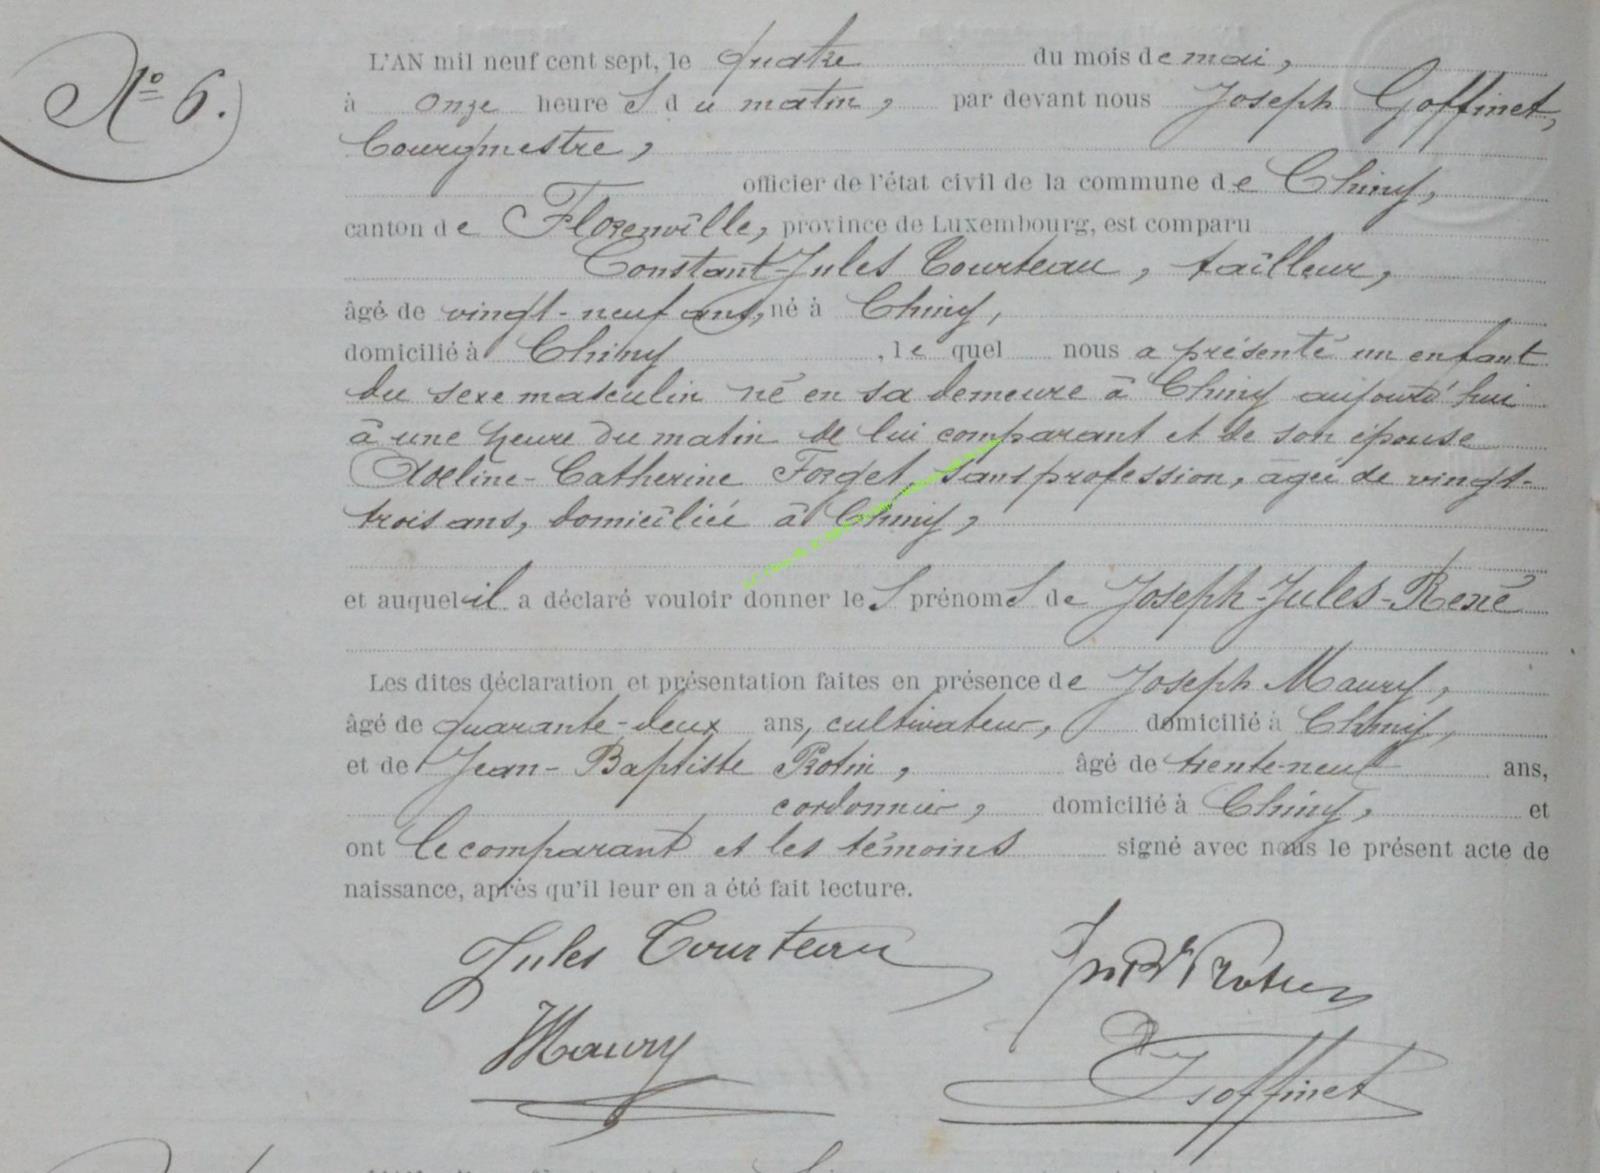 N° 6.
L'AN mil neuf cent sept, le quatre du mois de mai,
à onze heures du matin, par devant nous Joseph Goffinet,
bourgmestre,
officier de l'état civil de la commune de Chiny,
canton de Florenville, province de Luxembourg, est comparu
Constant-Jules Courteau, tailleur,
âgé de vingt-neuf ans, né à Chiny,
domicilié à Chiny, lequel nous a présenté un enfant
du sexe masculin né en sa demeure à Chiny aujourd'hui
à une heure du matin de lui comparant et de son épouse
Adeline-Catherine Forget, sans profession, âgée de vingt-
trois ans, domiciliée à Chiny,
et auquel il a déclaré vouloir donner les prénoms de Joseph-Jules-René
Les dites déclaration et présentation faites en présence de Joseph Maury,
âgé de quarante-deux ans, cultivateur, domicilié à Chiny,
et de Jean-Baptiste Rotin, âgé de trente-neuf ans,
cordonnier, domicilié à Chiny, et
ont le comparant et les témoins signé avec nous le présent acte de
naissance, après qu'il leur en a été fait lecture.
Jules Courteau
Maury
Goffinet